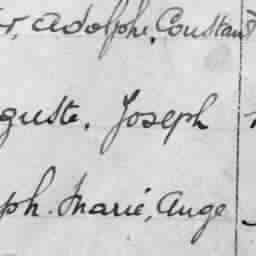 r, Adolphe, Constant
guste, Joseph
ph. Marie, Ange